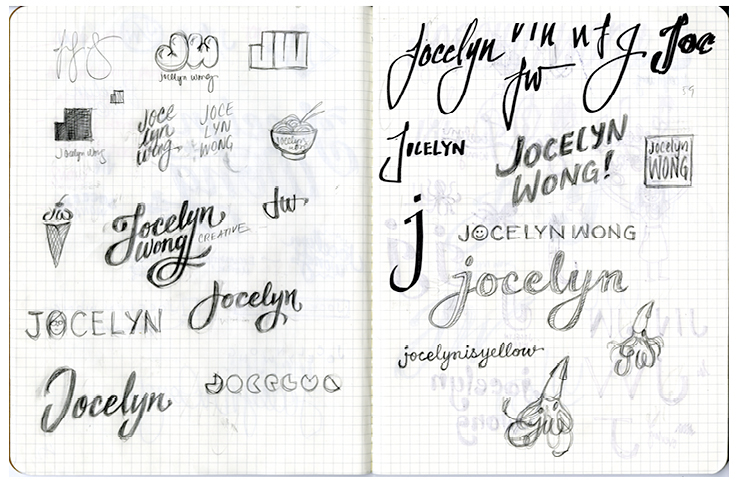 JW
jocelyn wong
Jocelyn Wong
joce
lyn
wong
JOCE
LYN
WONG
Jocelyn's
JW
Jocelyn
wong
CREATIVE
Jw
JOCELYN
Jocelyn
Jocelyn
JOCELYN
Jocelyn
J
Joc
Jw
JOCELYN
JOCELYN
WONG!
Jocelyn
WONG
j
JOCELYN WONG
jocelyn
jocelynisyellow
jw
jw